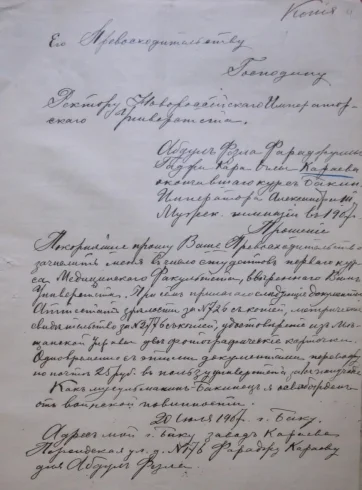 Копія
Его Превосходительству
Господину
Ректору Новороссійскаго Император-
скаго Университета.
Абдулъ Фазла Фараджулла
Гаджи Кара оглы Караева
окончившаго курсъ Бакин.
Императора Александра III
Мужск. гимназіи въ 1907
Прошеніе
Покорнѣйше прошу Ваше Превосходительство
зачислить меня въ число студентовъ перваго кур-
са Медицинскаго Факультета, ввѣреннаго Вамъ
Университета. При семъ прилагаю слѣдующіе документы
Аттестатъ зрѣлости за № 26 съ копіей, метрическое
свидѣтельство за № съ копіей, удостовѣреніе изъ
Управы двѣ фотографическія карточки.
Одновременно съ этими документами перевожу
по почтѣ 25 руб. въ пользу университета,
Какъ мусульманинъ Бакинецъ я освобожденъ
отъ воинской повинности.
20 Іюля 1907 г. Баку.
Адресъ мой г. Баку заводъ Караева
ул. д. № 176 Фараджу Караеву
для Абдулъ Фазла